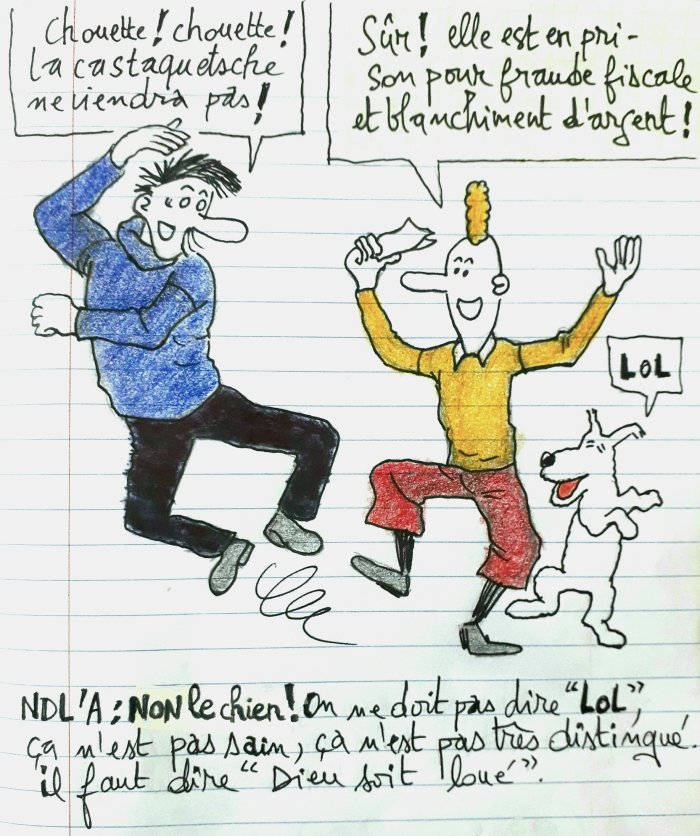 Chouette! chouette!
la castaquetsche
ne viendra pas!
Sûr! elle est en pri-
son pour fraude fiscale
et blanchiment d'argent!
LOL
NDL'A: NON le chien! On ne doit pas dire "LOL",
ça n'est pas sain, ça n'est pas très distingué.
il faut dire "Dieu soit loué".